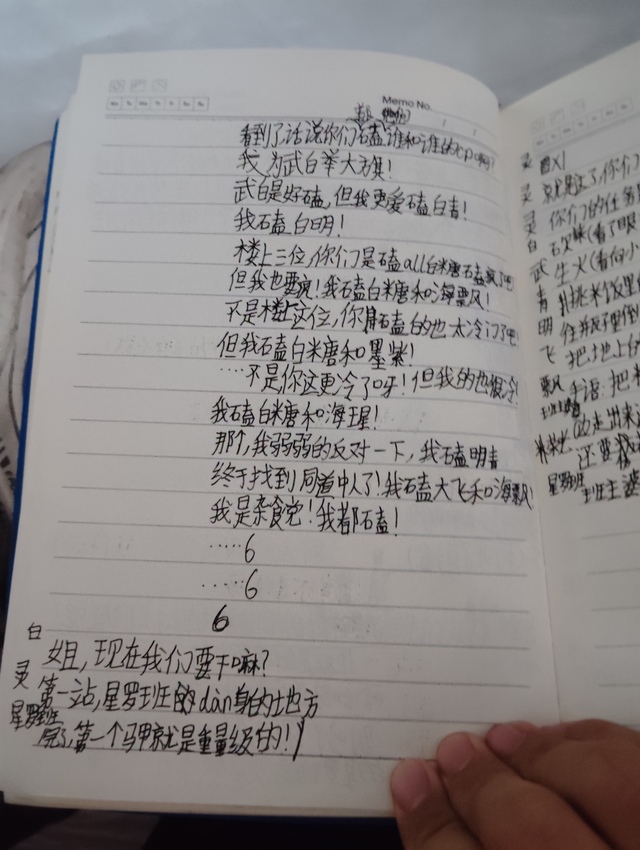 Memo No.
看到了话说你们磕谁和谁的cp啊?
我为武白举大旗!
武白是好磕,但我更爱磕白青!
我磕白明!
楼上三位,你们是磕all白米糖磕疯了吧
但我也要疯!我磕白米糖和海飘!
不是楼上这位,你磕的也太冷门了吧
但我磕白米糖和墨紫!
····不是你这更冷了呀!但我的也很冷!
我磕白米糖和海瑆!
那个,我弱弱的反对一下,我磕明青
终于找到同道中人了!我磕大飞和海飘!
我是杂食党!我都磕!
·····6
·····6
6
白 姐,现在我们要干嘛?
灵 第一站,星罗班的dàn身的地方
星罗班 完了,第一个马甲就是重量级的!
灵
灵 就是这了,你们
灵 你们的任务
白
武 生火(看向小
青 挑米饭里的
明
飞 把地上的
飘 手语:把
走出来
还要
星罗班 班主婆